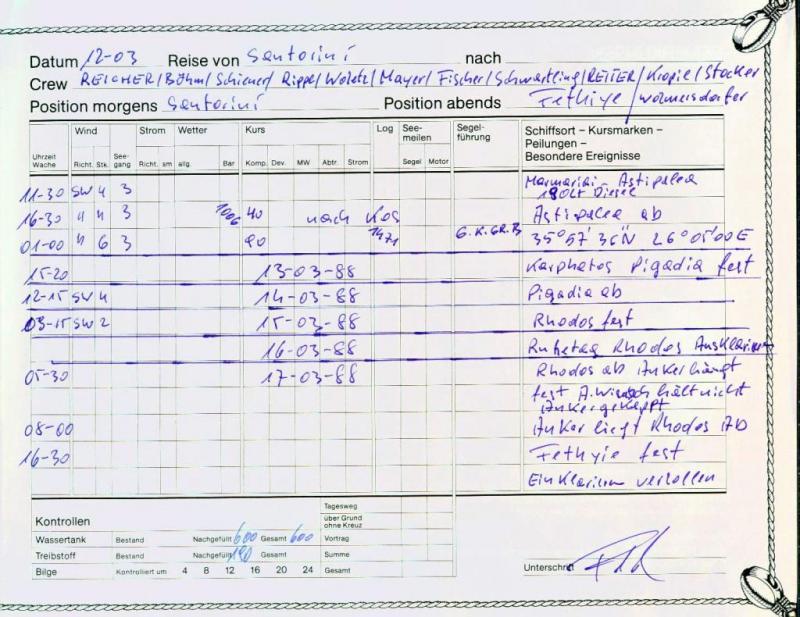 Datum 12-03 Reise von Santorini nach
Crew REICHER/Böhm/Schiener/Rippel/Woletz/Mayer/Fischer/Schwartling/REITER/Kropie/Stocker
Position morgens Santorini Position abends Fethiye /Wolmersdorfer
Wind Strom Wetter Kurs Log See- meilen Segel- führung Schiffsort – Kursmarken –
Uhrzeit Wache Richt. Stk. See- gang Richt. sm allg. Bar Komp. Dev. MW Abtr. Strom Segel Motor Peilungen –
Besondere Ereignisse
11-30 SW 4 3 Astipalea
Diesel
16-30 " 4 3 1006 40 nach Kos Astipalea ab
01-00 " 6 3 90 1471 35°57'36"N 26°05'00E
15-20 13-03-88 Karphatos Pigadia fest
12-15 SW 4 14-03-88 Pigadia ab
03-15 SW 2 15-03-88 Rhodos fest
16-03-88 Ruhetag Rhodos Ausklarieren
05-30 17-03-88 Rhodos ab Anker hängt
fest A.Winsch hält nicht
Anker gekappt
08-00 Anker liegt Rhodos Ab
16-30 Fethyie fest
Einklarieren verzollen
Kontrollen Tagesweg
über Grund
ohne Kreuz
Wassertank Bestand Nachgefüllt 600 Gesamt 600 Vortrag
Treibstoff Bestand Nachgefüllt 190 Gesamt Summe
Bilge Kontrolliert um 4 8 12 16 20 24 Gesamt
Unterschrift